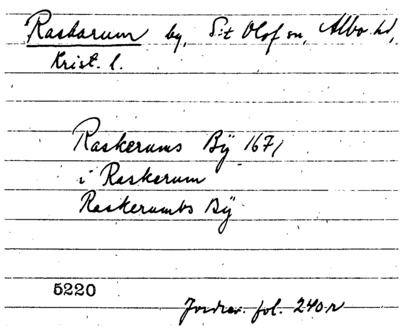 Raskarum by, S:t Olof sn, Albo hd,
Krist. l.
Raskerums Bÿ 1671
i Raskerum
Raskerumbs Bÿ
5220
Jordrev. fol. 240 r